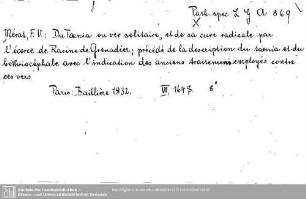 Path. spec. L J A 869
Mérat, F. V.: Du Taenia ou ver solitaire, et de sa cure radicale par
l'écorce de Racine de Grenadier; précédé de la description du taenia et du
bothriocéphale avec l'indication des anciens traitemens employés contre
ces vers.
Paris: Baillière 1832. III, 164 S. 8°